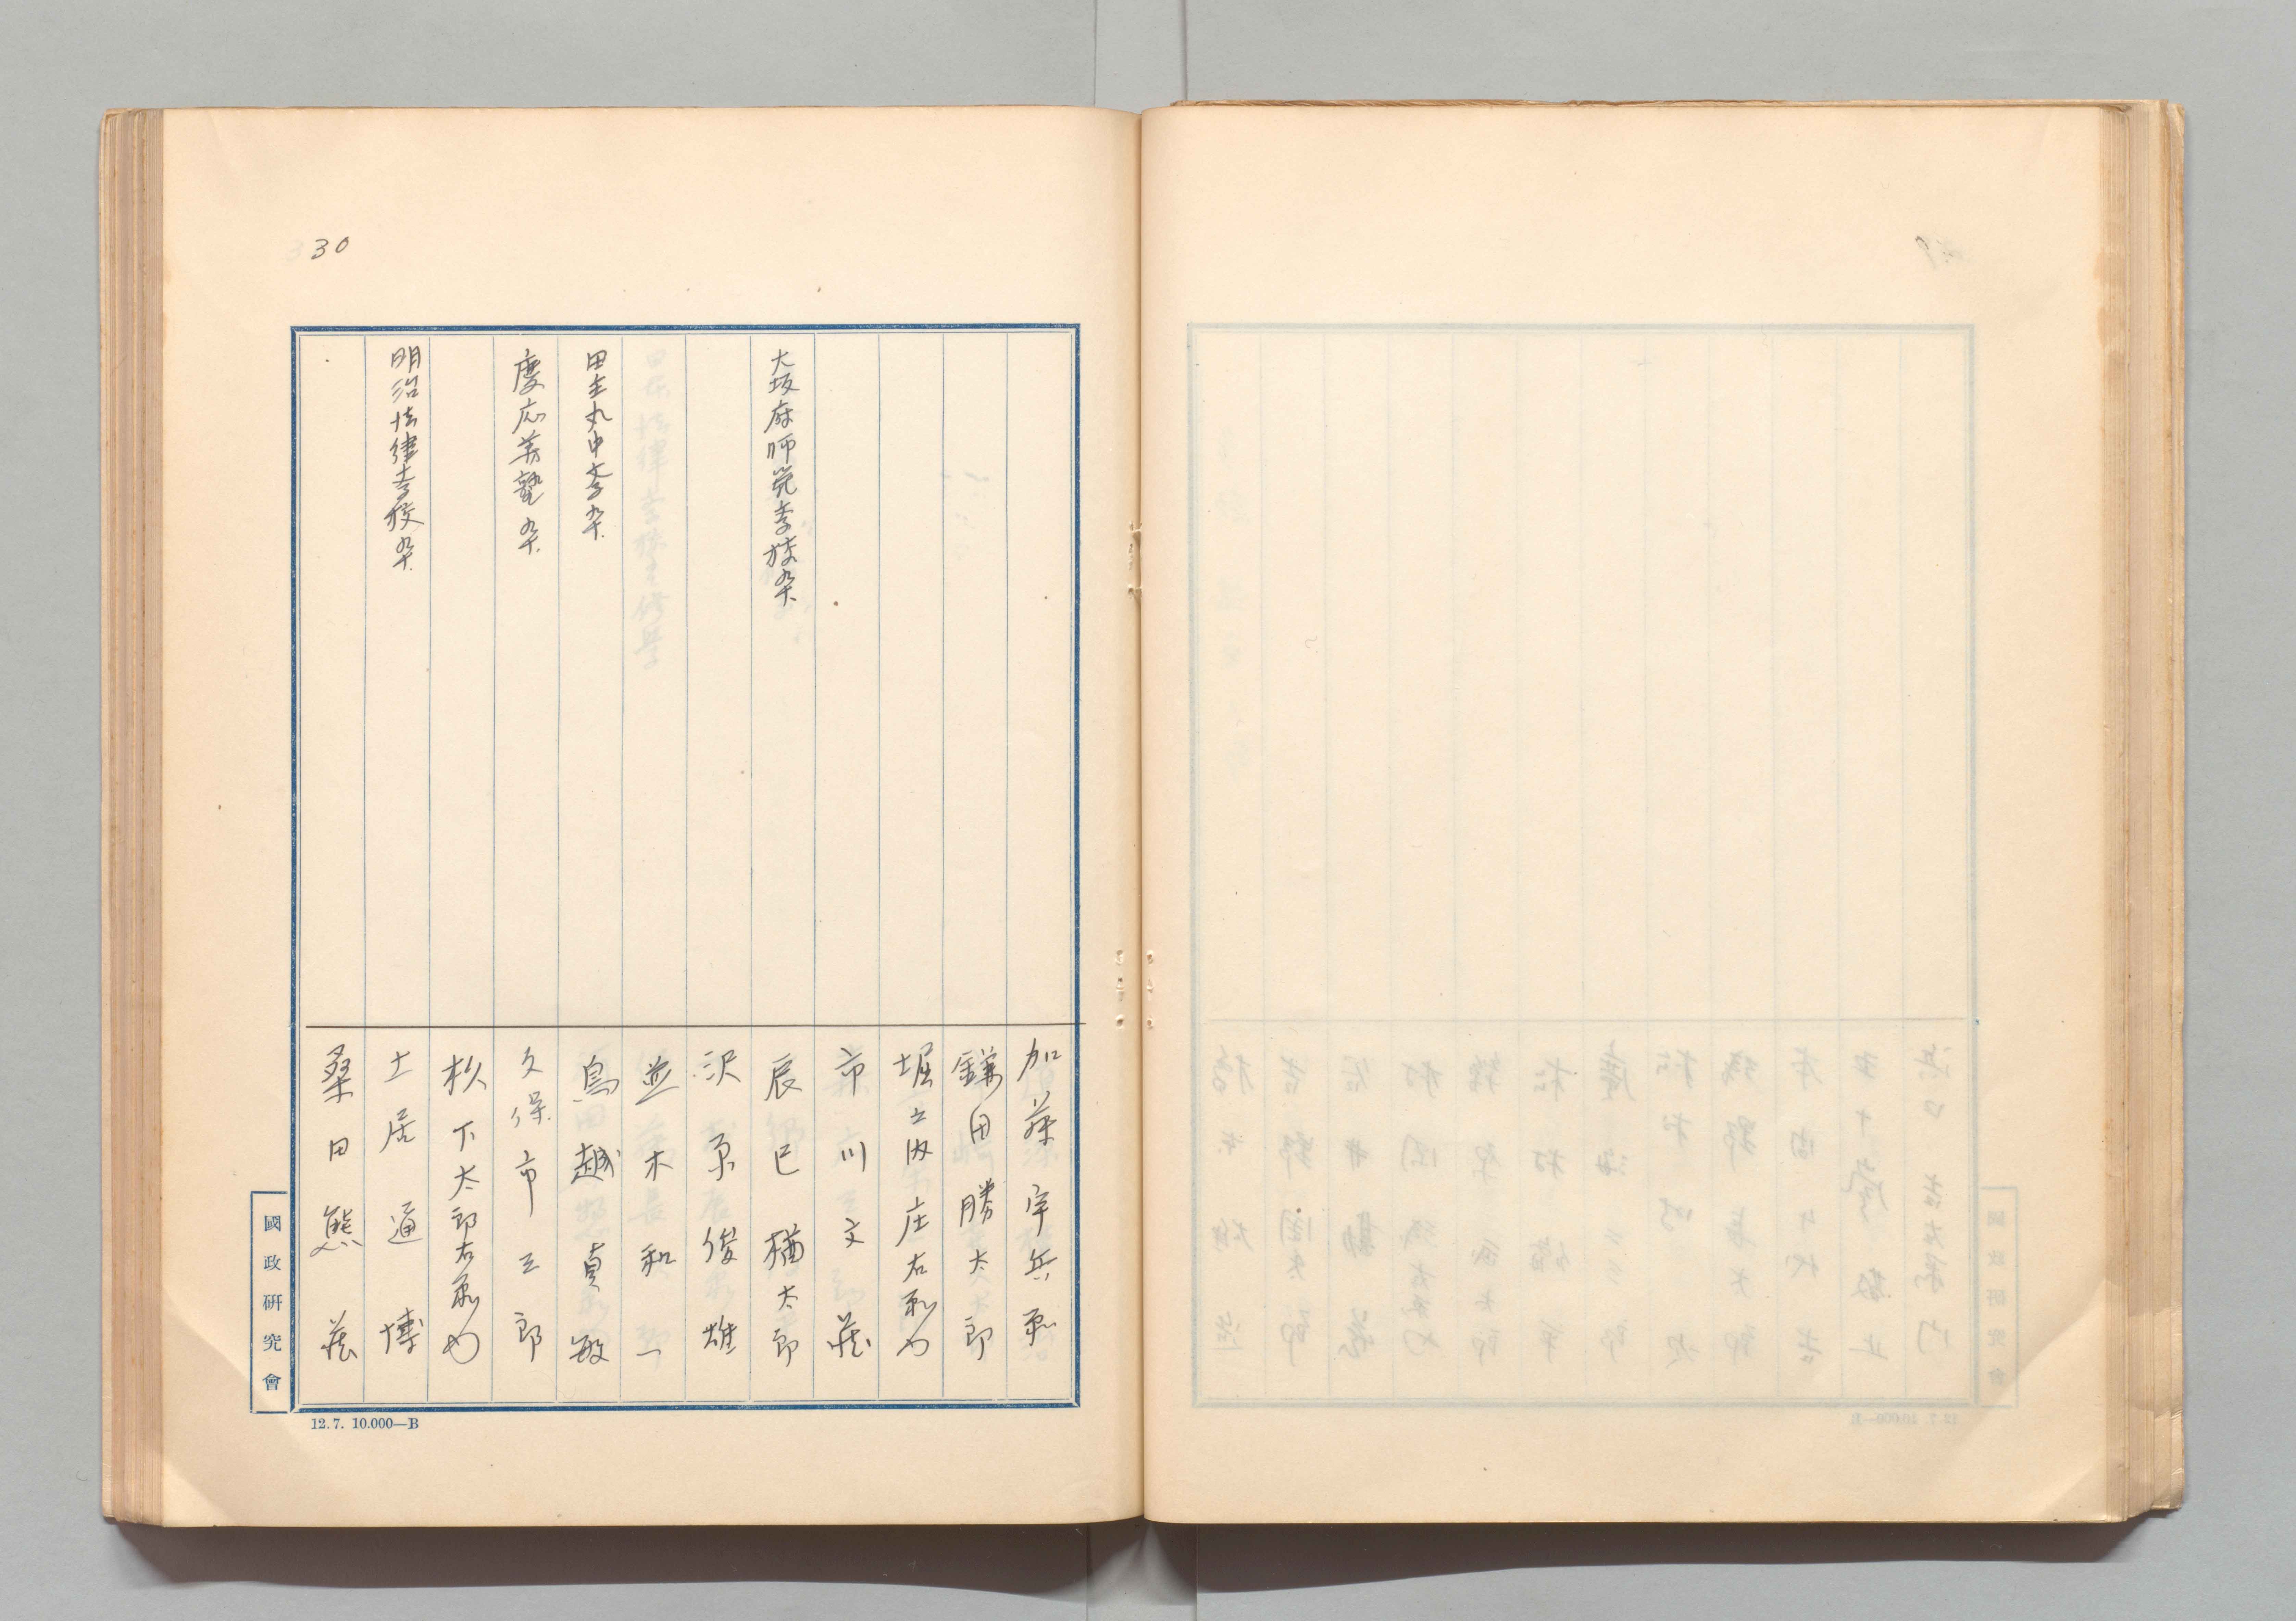 30
加藤宇兵衛
鎌田勝太郎
堀之内庄右衛門
市川文蔵
大坂府師範学校卆.
辰巳楢太郎
沢原俊雄
並木和一
田主丸中学卆.
鳥越貞敏
慶応義塾卆.
久保市三郎
杉下太郎右衛門
明治法律学校卆.
土居通博
桑田熊蔵
國政研究會
12.7. 10.000—B